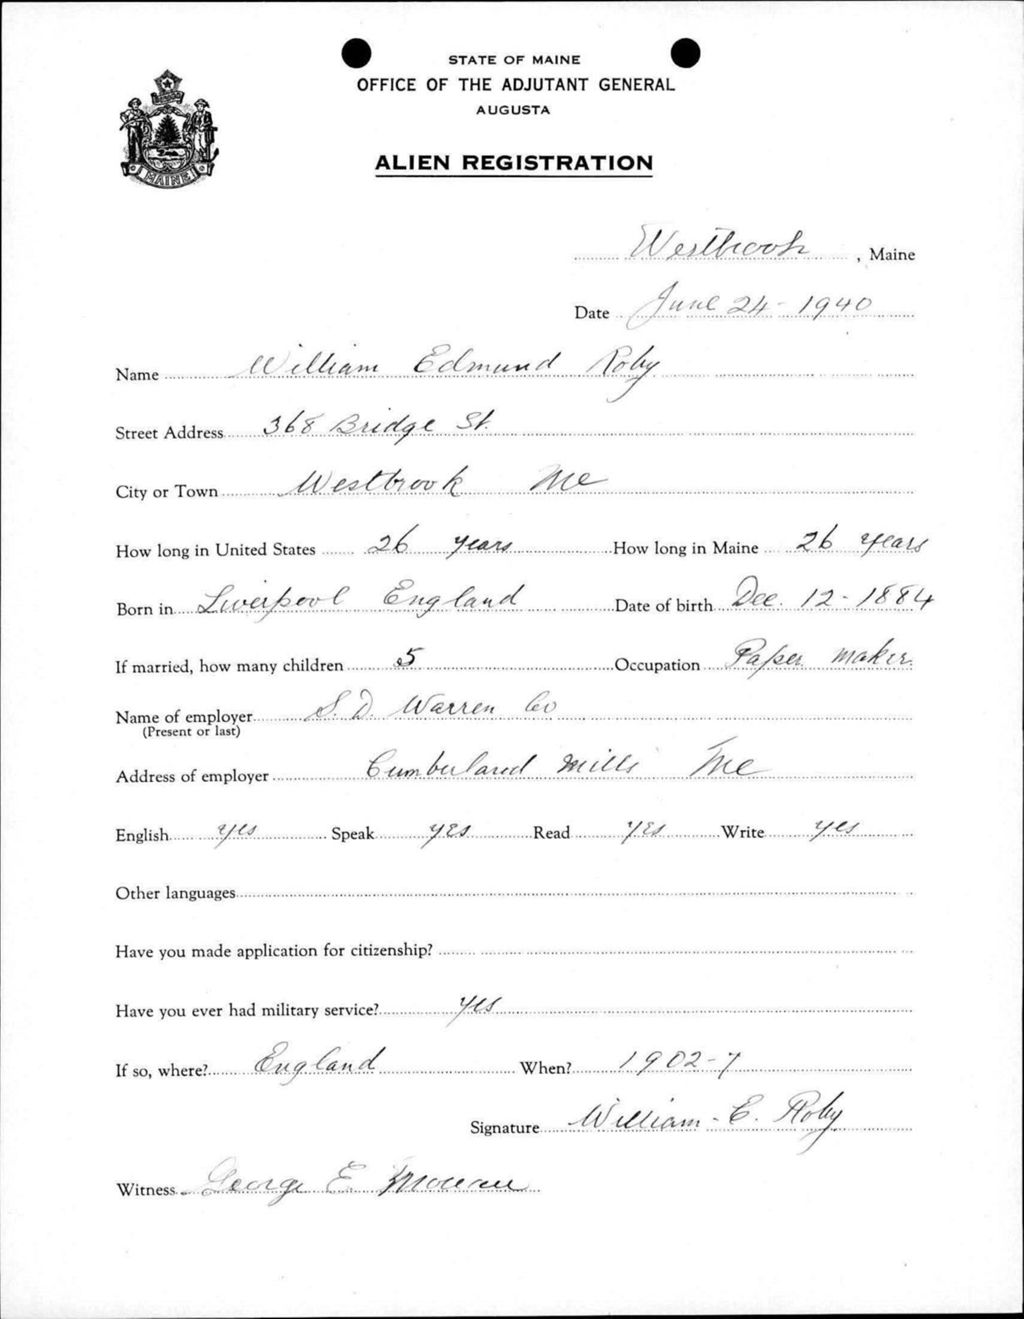 STATE OF MAINE
OFFICE OF THE ADJUTANT GENERAL
AUGUSTA
MAINE
ALIEN REGISTRATION
Westbrook, Maine
Date June 24 - 1940
Name William Edmund Roby
Street Address 368 Bridge St.
City or Town Westbrook Me
How long in United States 26 years How long in Maine 26 years
Born in Liverpool England Date of birth Dec. 12 - 1884
If married, how many children 5 Occupation Paper maker
Name of employer S. D. Warren Co
(Present or last)
Address of employer Cumberland Mills Me
English yes Speak yes Read yes Write yes
Other languages
Have you made application for citizenship?
Have you ever had military service? yes
If so, where? England When? 1902-7
Signature William - E. Roby
Witness George E.